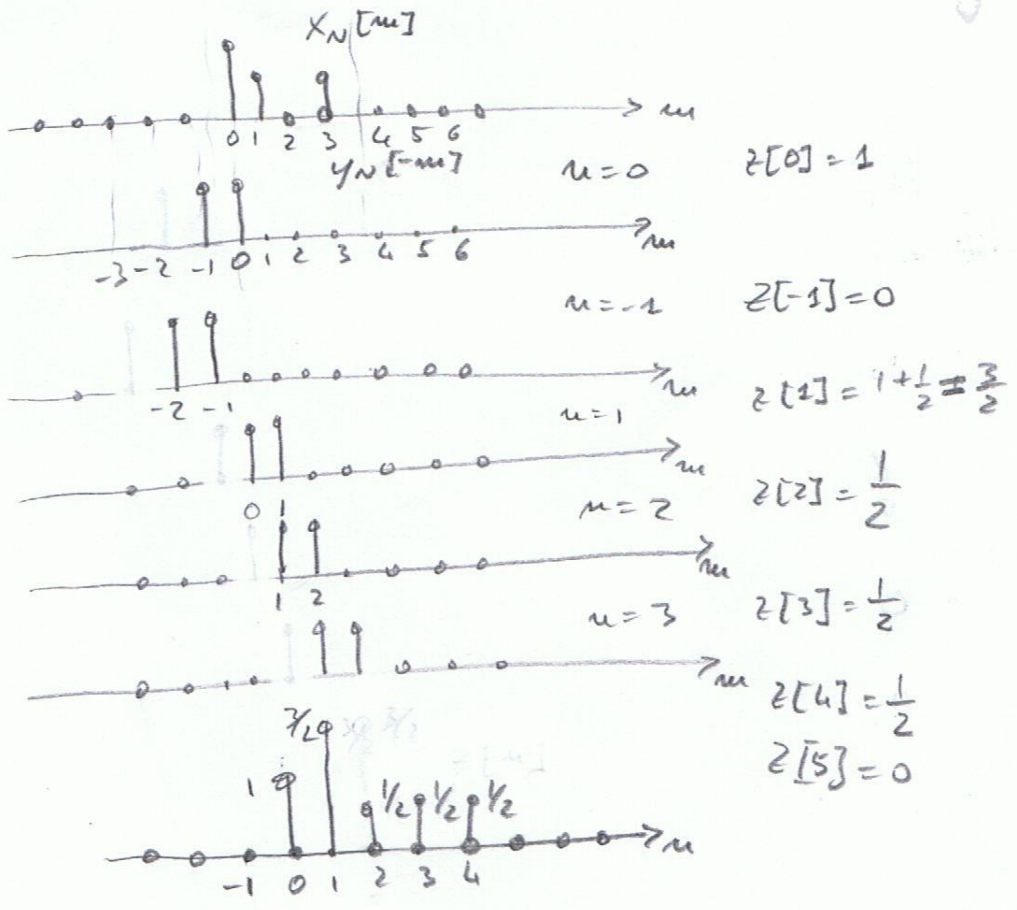 x_N[m]
0 1 2 3 4 5 6 m
y_N[-m] n=0 z[0]=1
-3 -2 -1 0 1 2 3 4 5 6 m
n=-1 z[-1]=0
-2 -1 m
n=1 z[1]=1+1/2=3/2
m
0 1 n=2 z[2]=1/2
m
1 2 n=3 z[3]=1/2
m
z[4]=1/2
3/2 z[5]=0
1 1/2 1/2 1/2
n
-1 0 1 2 3 4